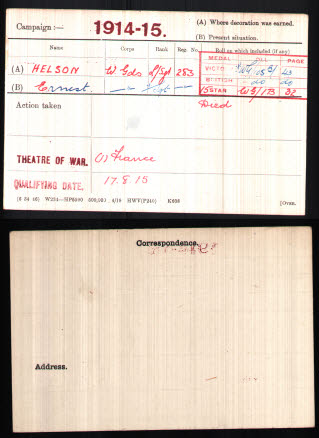 Campaign :— 1914-15. (A) Where decoration was earned.
(B) Present situation.
Name Corps Rank Reg. No. Roll on which included (if any)
MEDAL ROLL PAGE
(A) HELSON W Gds L/Sgt 283 VICTORY
BRITISH do do
(B) Ernest. 15 STAR WG/1B 32
Action taken Died
THEATRE OF WAR. (1) France
QUALIFYING DATE. 17.8.15
W234—HP5590 500,000 4/19 HWV(P240) K608 [Over.
Correspondence.
Address.